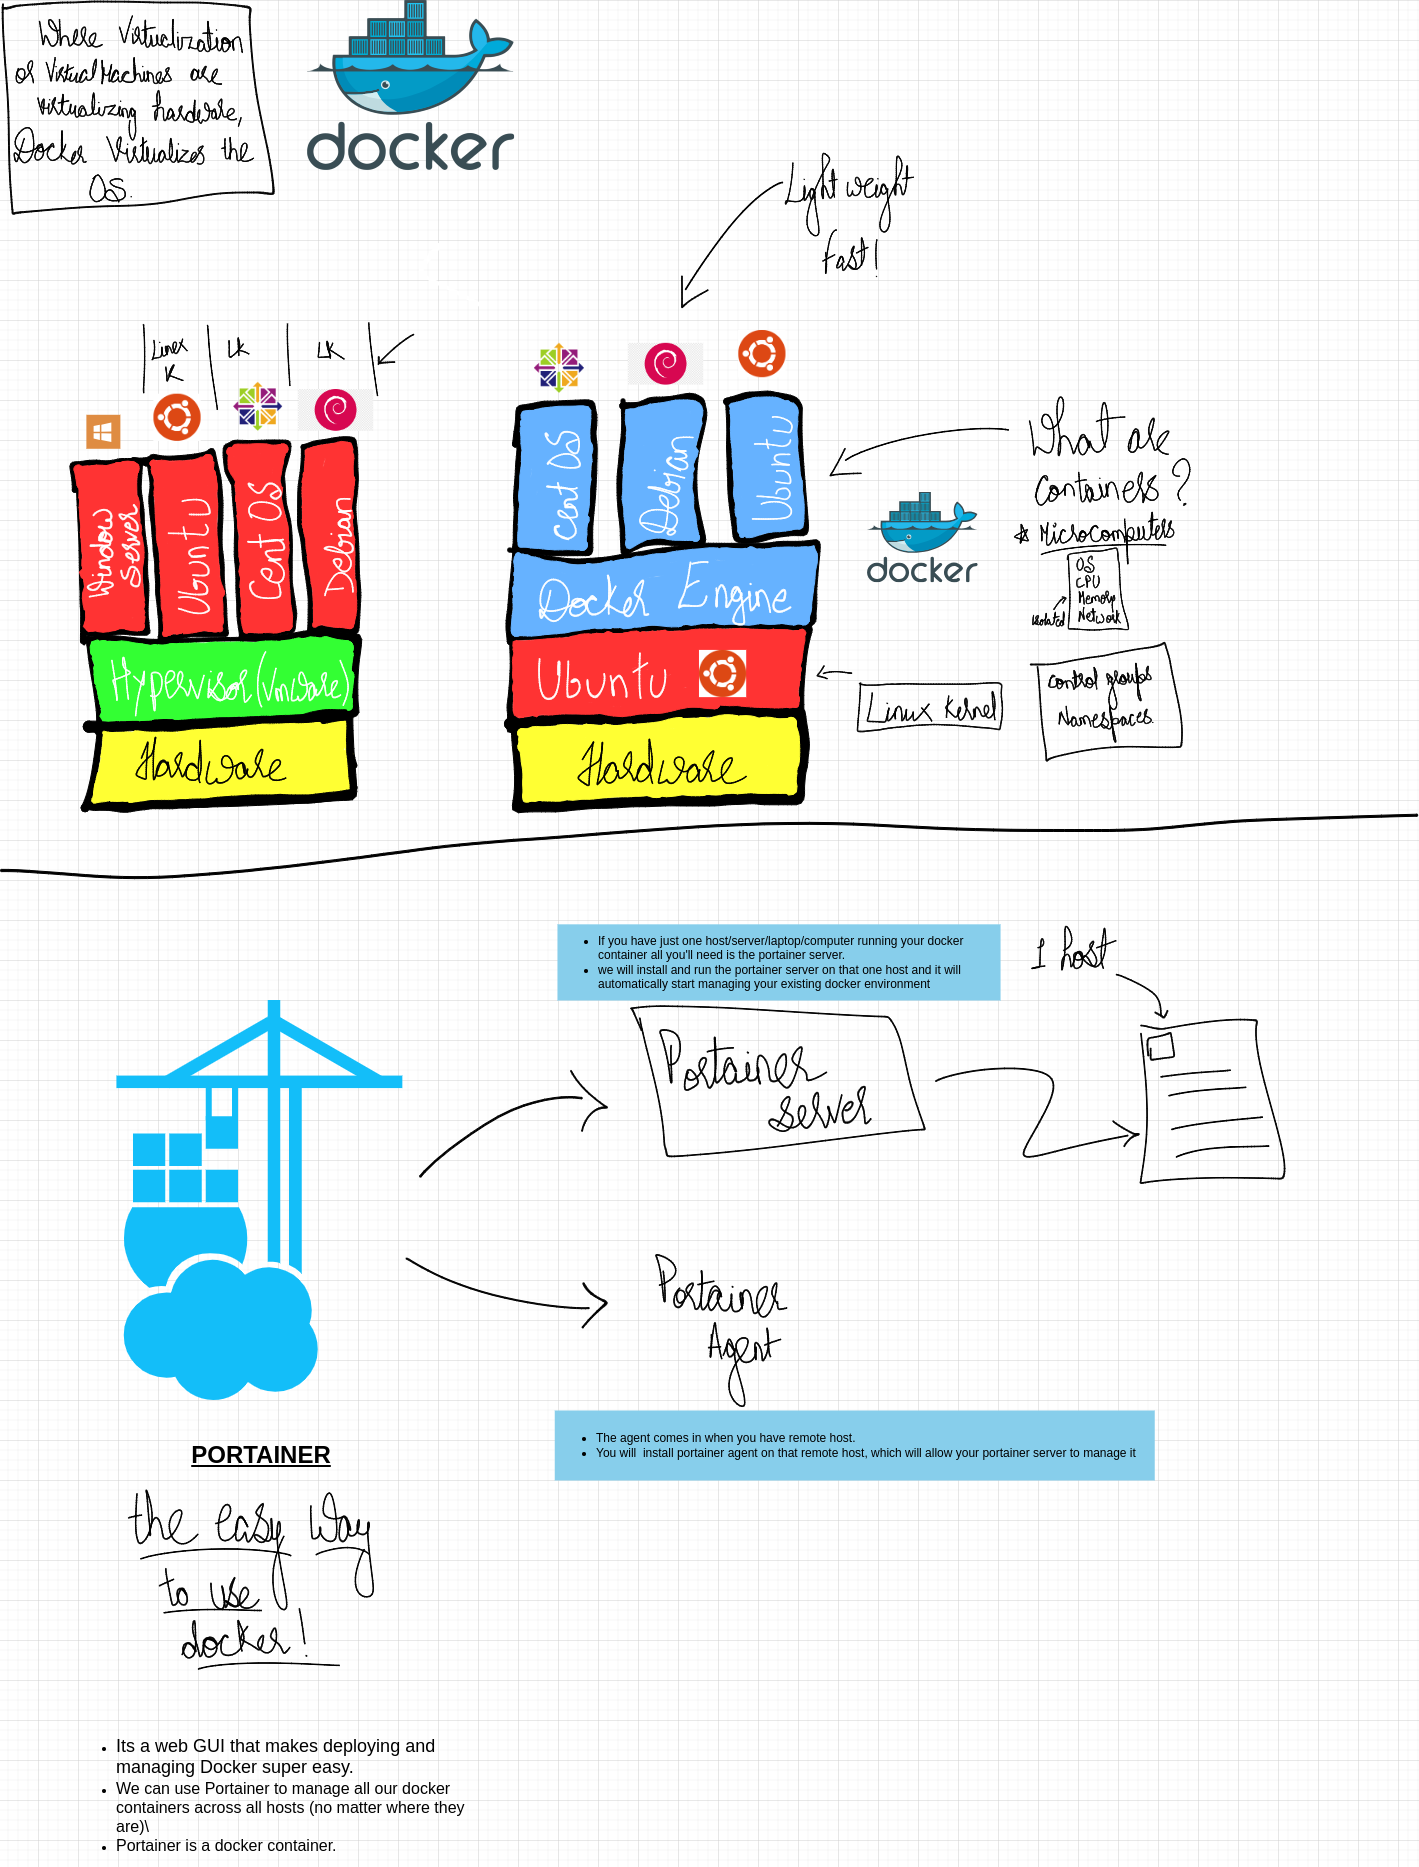 Where Virtualization
of Virtual Machines are
virtualizing hardware,
Docker Virtualizes the
OS.
docker
Light weight
Fast!
Linex
K
LK
LK
Window
Server
Ubuntu
Cent OS
Debian
Hypervisor (Vmware)
Hardware
Cent OS
Debian
Ubuntu
Docker Engine
Ubuntu
Hardware
What are
Containers?
docker
* Microcomputers
OS
CPU
Memory
Network
isolated
Linux Kernel
Control groups
Namespaces.
• If you have just one host/server/laptop/computer running your docker
container all you'll need is the portainer server.
• we will install and run the portainer server on that one host and it will
automatically start managing your existing docker environment
1 host
Portainer
server
Portainer
Agent
• The agent comes in when you have remote host.
• You will  install portainer agent on that remote host, which will allow your portainer server to manage it
PORTAINER
the easy way
to use
docker!
• Its a web GUI that makes deploying and
managing Docker super easy.
• We can use Portainer to manage all our docker
containers across all hosts (no matter where they
are)\
• Portainer is a docker container.